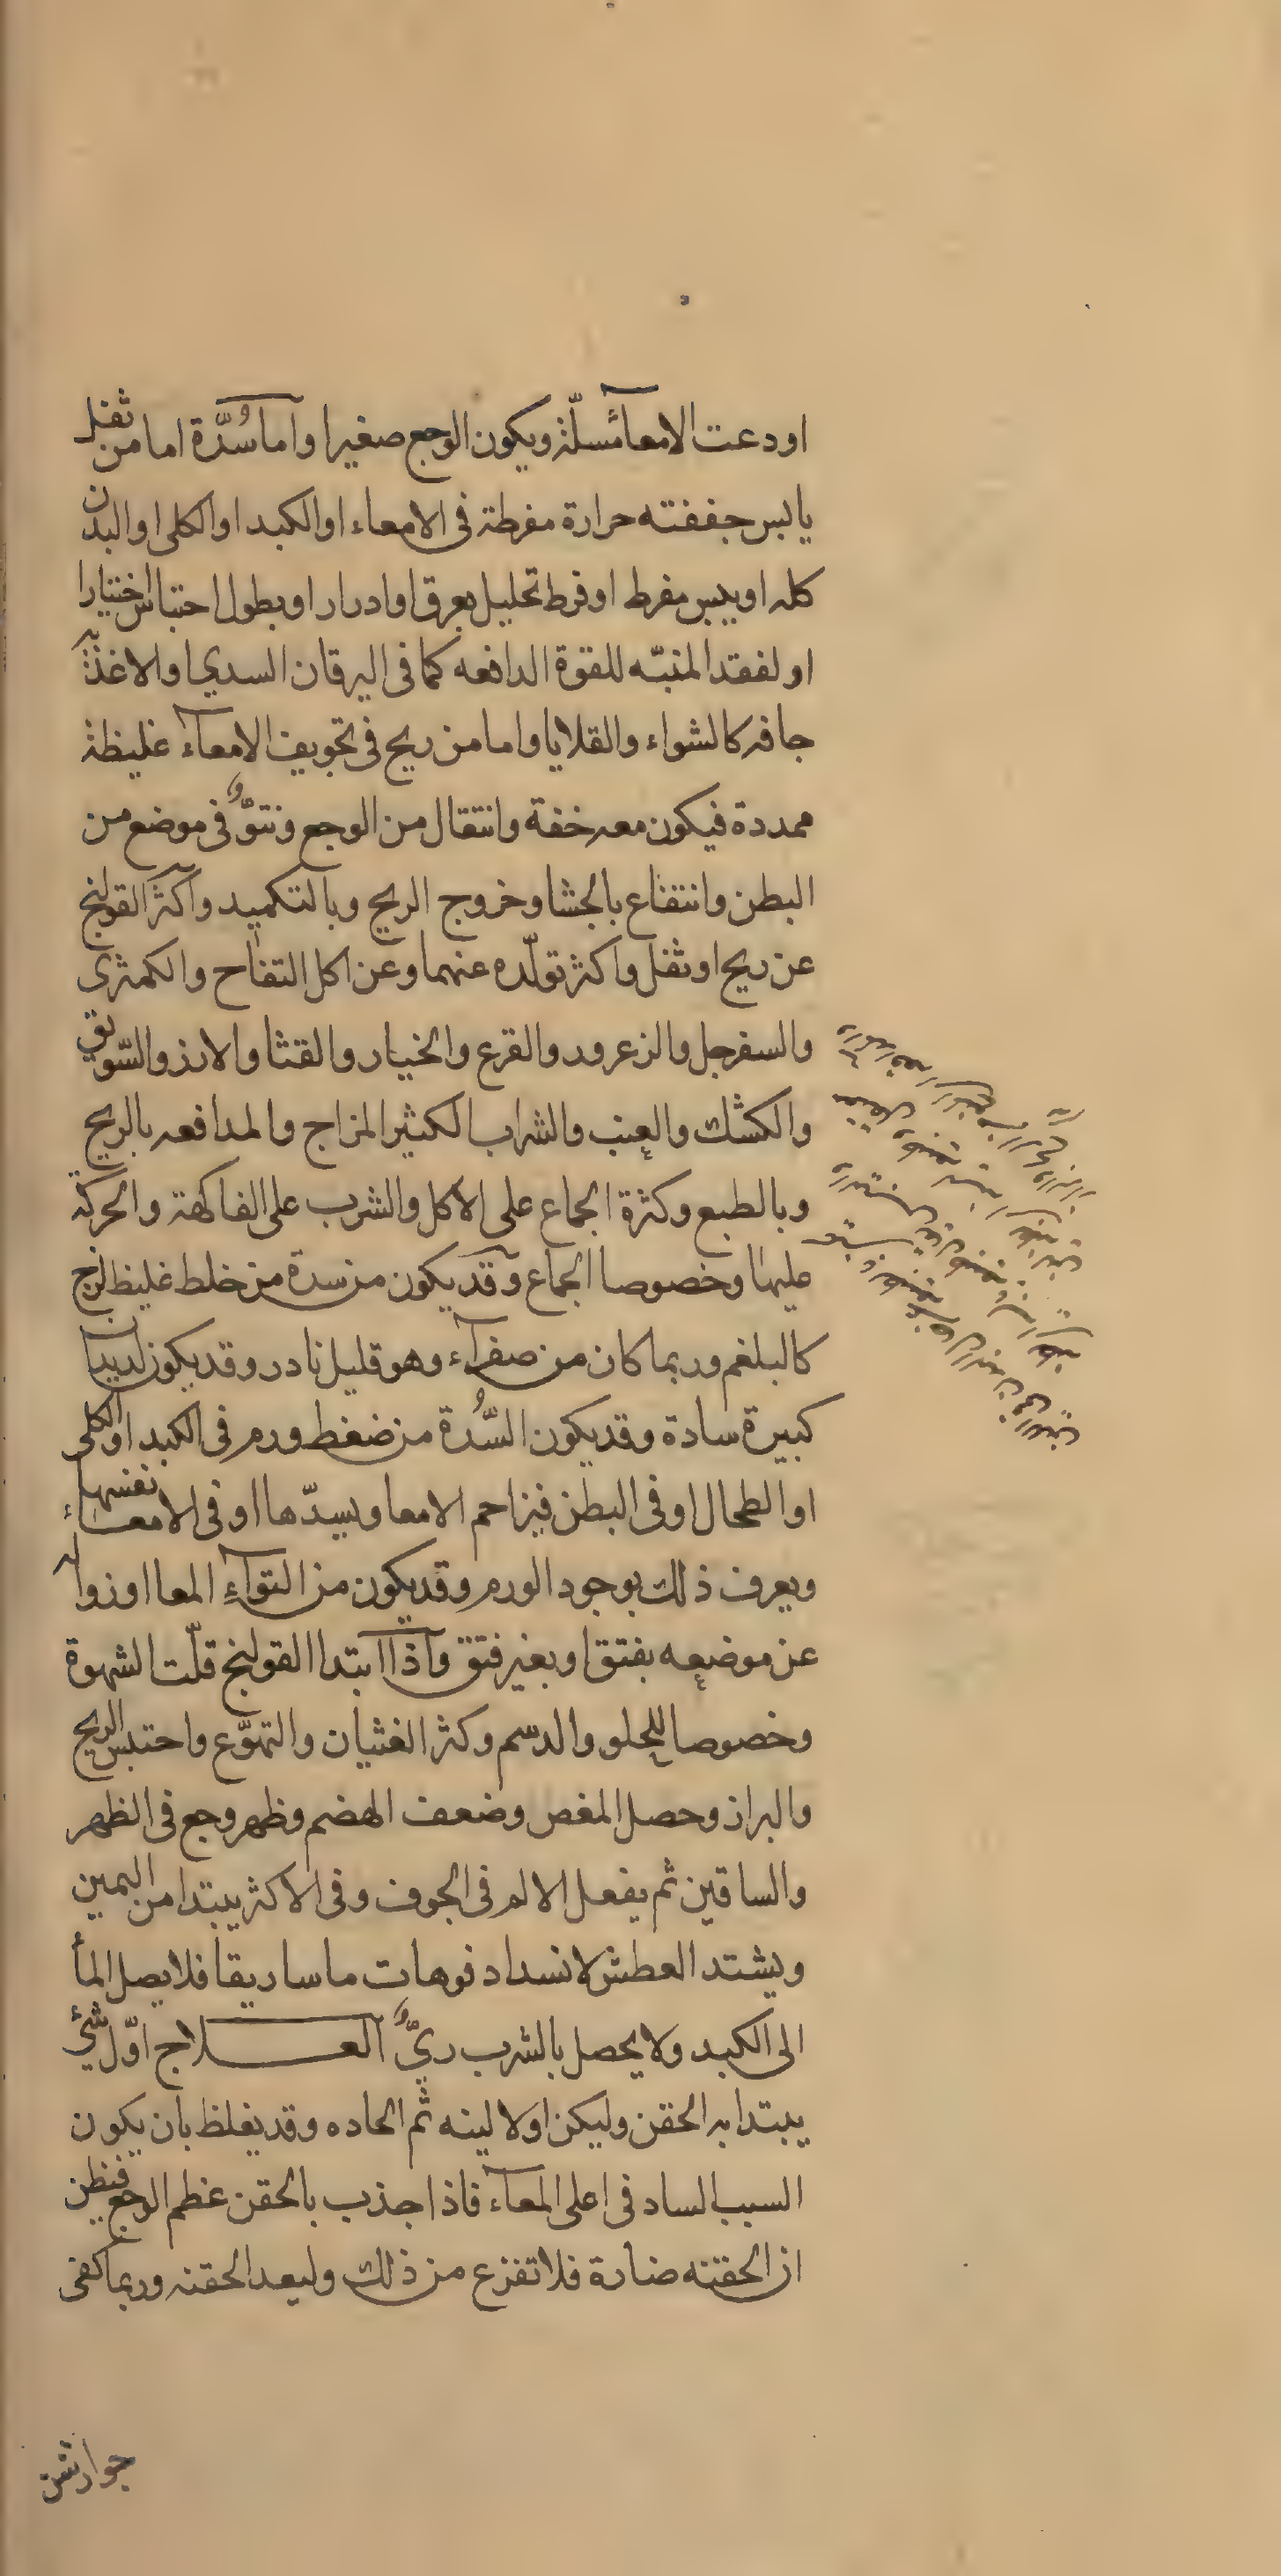 او دعت الامعآ مسلّة ويكون الوجع صغيرا وآما سُدّة اما من ثفل
يابس جففته حرارة مفرطة فى الامعاء او الكبد او الكلى او البدن
كله او يبس مفرط او فرط تحليل بعرق او ادرار او بطول احتباس اختيارا
او لفقد المنبّه للقوة الدافعه كما فى اليرقان السدي او لاغذية
جافه كالشواء والقلايا واما من ريح فى تجويف الامعآء غليظة
ممددة فيكون معه خفة وانتقال من الوجع ونتوٌّ فى موضع من
البطن وانتفاع بالجشا وخروج الريح وبالتكميد وآكثر القولنج
عن ريح او ثفل واكثر تولّده عنهما وعن اكل التفاح والكمثرى
والسفرجل والزعرور والقرع والخيار والقثا والارز والسّويق
والكشك والعنب والشراب الكثير المزاج والمدافعه بالريح
وبالطبع وكثرة الجماع على الاكل والشرب على الفاكهة والحركة
عليها وخصوصا الجماع وآقد يكون من سدة من خلط غليظ لزج
كالبلغم وربما كان من صفرآء وهو قليل نادر وقد يكون لديدان
كبيرة سادة وقد يكون السُّدة من ضغط ورم فى الكبد او الكلى
او الطحال او فى البطن فيزاحم الامعا ويسدّها او فى الامعاء نفسها
ويعرف ذلك بوجود الورم وقد يكون من التوآءِ المعا او زواله
عن موضعه بفتق او بغير فتق وآذا ابتدا القولنج قلّت الشهوة
وخصوصا للحلو والدسم وكثر الغثيان والتهوّع واحتبس الريح
والبراز وحصل المغص وضعف الهضم وظهر وجع فى الظهر
والساقين ثم يفعل الالم فى الجوف وفى الاكثر يبتدا من اليمين
ويشتد العطش لانسداد فوهات ماساريقا فلا يصل المأ
الى الكبد ولا يحصل بالشرب ريٌّ آلعلاج اوّل شئ
يبتدا به الحقن وليكن اولا لينه ثم الحاده وقد يغلظ بان يكون
السبب الساد فى اعلى المعآء فاذا جذب بالحقن عظم الوجع فيظن
ان الحقنه ضارة فلا تفزع من ذلك وليعد الحقنه وربما كفى
جوارشن